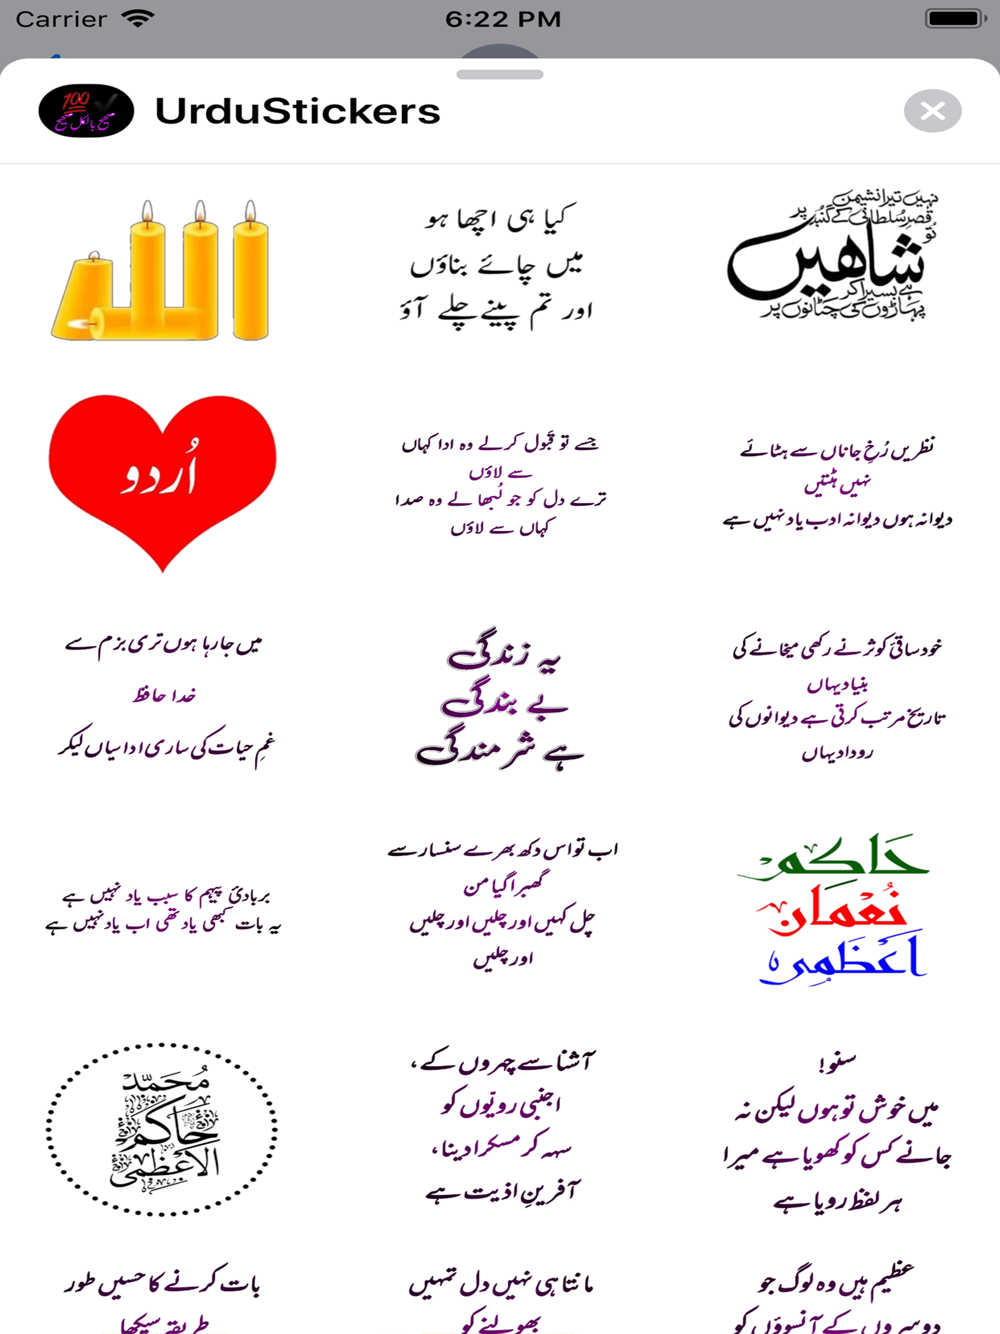 Carrier
6:22 PM
100
صحیح بالکل صحیح
UrduStickers
الله
کیا ہی اچھا ہو
میں چائے بناؤں
اور تم پینے چلے آؤ
نہیں تیرا نشیمن
قصرِ سُلطانی کے گنبد پر
تُو
شاھیں
ہے بسیرا کر
پہاڑوں کی چٹانوں پر
اُردو
جسے تو قَبول کرلے وہ ادا کہاں
سے لاؤں
ترے دل کو جو لُبھا لے وہ صدا
کہاں سے لاؤں
نظریں رُخِ جاناں سے ہٹائے
نہیں ہٹتیں
دیوانہ ہوں دیوانہ ادب یاد نہیں ہے
میں جارہا ہوں تری بزم سے
خدا حافظ
غمِ حیات کی ساری اداسیاں لیکر
یہ زندگی
بے بندگی
ہے شرمندگی
خود ساقیٔ کوثر نے رکھی میخانے کی
بنیاد یہاں
تاریخ مرتب کرتی ہے دیوانوں کی
روداد یہاں
بربادیٔ پیہم کا سبب یاد نہیں ہے
یہ بات کبھی یاد تھی اب یاد نہیں ہے
اب تو اس دکھ بھرے سنسار سے
گھبرا گیا من
چل کہیں اور چلیں اور چلیں
اور چلیں
حَاکِم
نُعْمَان
اَعْظَمِی
مُحَمَّد
حَاکِم
الاَعْظَمِی
آشنا سے چہروں کے،
اجنبی رویّوں کو
سہہ کر مسکرا دینا،
آفرینِ اذیت ہے
سنو!
میں خوش تو ہوں لیکن نہ
جانے کس کو کھویا ہے میرا
ہر لفظ رویا ہے
بات کرنے کا حسیں طور
طریقہ سیکھا
مانتا ہی نہیں دل تمہیں
بھولنے کو
عظیم ہیں وہ لوگ جو
دوسروں کے آنسوؤں کو